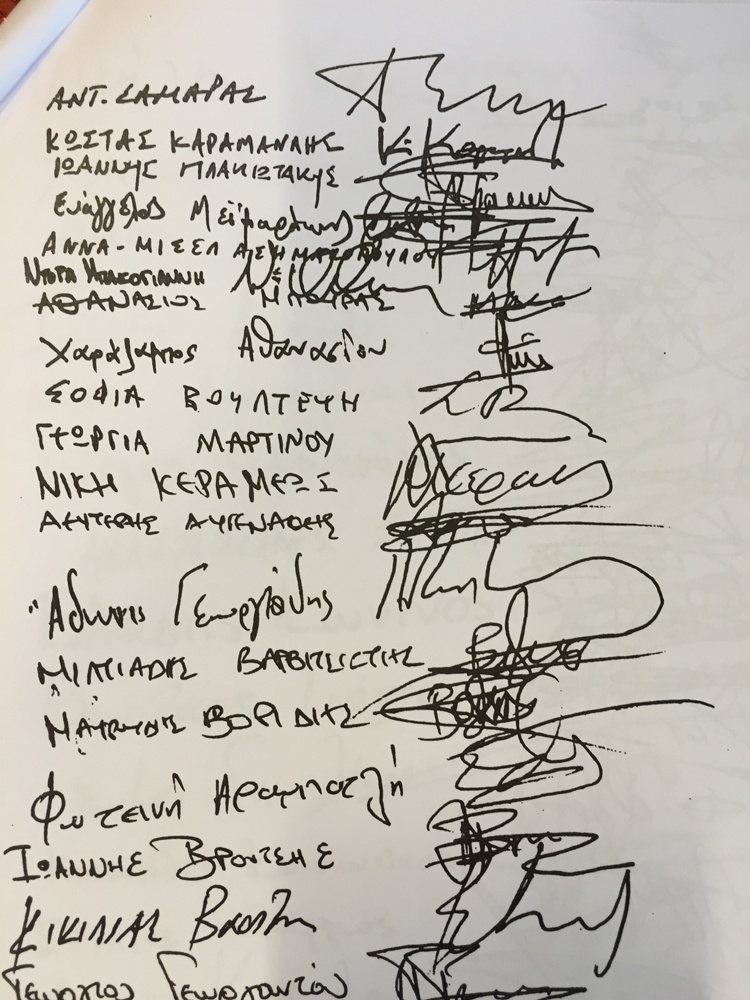 ΑΝΤ. ΣΑΜΑΡΑΣ
ΚΩΣΤΑΣ ΚΑΡΑΜΑΝΛΗΣ Κ. Καραμανλή
ΙΩΑΝΝΗΣ ΠΛΑΚΙΩΤΑΚΗΣ
Ευάγγελος Μεϊμαράκης
ΑΝΝΑ-ΜΙΣΕΛ ΑΣΗΜΑΚΟΠΟΥΛΟΥ
ΝΤΟΡΑ ΜΠΑΚΟΓΙΑΝΝΗ
ΑΘΑΝΑΣΙΟΣ ΜΠΟΥΡΑΣ
Χαράλαμπος Αθανασίου
ΣΟΦΙΑ ΒΟΥΛΤΕΨΗ
ΓΕΩΡΓΙΑ ΜΑΡΤΙΝΟΥ
ΝΙΚΗ ΚΕΡΑΜΕΩΣ
ΛΕΥΤΕΡΗΣ ΑΥΓΕΝΑΚΗΣ
Άδωνις Γεωργιάδης
ΜΙΛΤΙΑΔΗΣ ΒΑΡΒΙΤΣΙΩΤΗΣ
ΜΑΥΡΟΥΔΗΣ ΒΟΡΙΔΗΣ
Φωτεινή Αραμπατζή
ΙΩΑΝΝΗΣ ΒΡΟΥΤΣΗΣ
ΚΙΚΙΛΙΑΣ Βασίλης
Γεώργιος Γεωργαντάς